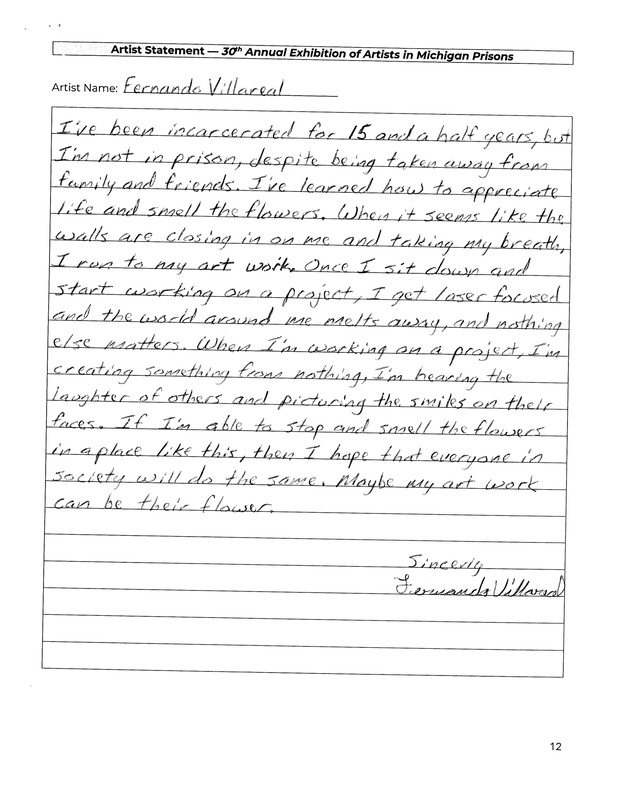 Artist Statement — 30th Annual Exhibition of Artists in Michigan Prisons
Artist Name: Fernando Villareal
I've been incarcerated for 15 and a half years, but
I'm not in prison, despite being taken away from
family and friends. I've learned how to appreciate
life and smell the flowers. When it seems like the
walls are closing in on me and taking my breath,
I run to my art work. Once I sit down and
start working on a project, I get laser focused
and the world around me melts away, and nothing
else matters. When I'm working on a project, I'm
creating something from nothing, I'm hearing the
laughter of others and picturing the smiles on their
faces. If I'm able to stop and smell the flowers
in a place like this, then I hope that everyone in
society will do the same. Maybe my art work
can be their flower.
Sincerly
Fernando Villareal
12